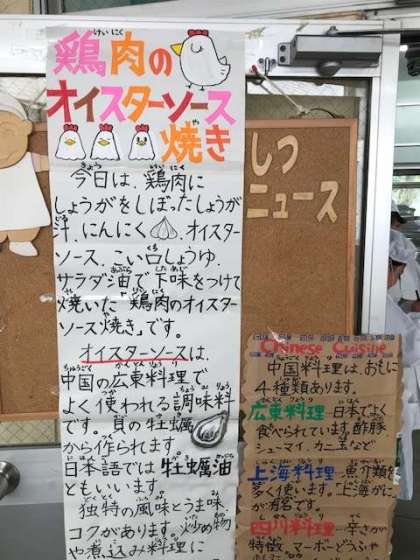 鶏肉の
オイスターソース
焼き
今日は、鶏肉に
しょうがをしぼったしょうが
汁、にんにく、オイスター
ソース、こい口しょうゆ、
サラダ油で下味をつけて
焼いた"鶏肉のオイスター
ソース焼き"です。
オイスターソースは、
中国の広東料理で
よく使われる調味料
です。貝の牡蠣
から作られます。
日本語では牡蠣油
ともいいます。
独特の風味とうま味、
コクがあります。炒め物
や煮込み料理に
しつ
ニュース
Chinese Cuisine
中国料理は、おもに
4種類あります。
広東料理…日本でよく
食べられています。酢豚
シューマイ、カニ玉など
上海料理…魚介類を
多く使います。上海がに
が有名です。
四川料理…辛さが
特徴。マーボーどうふや